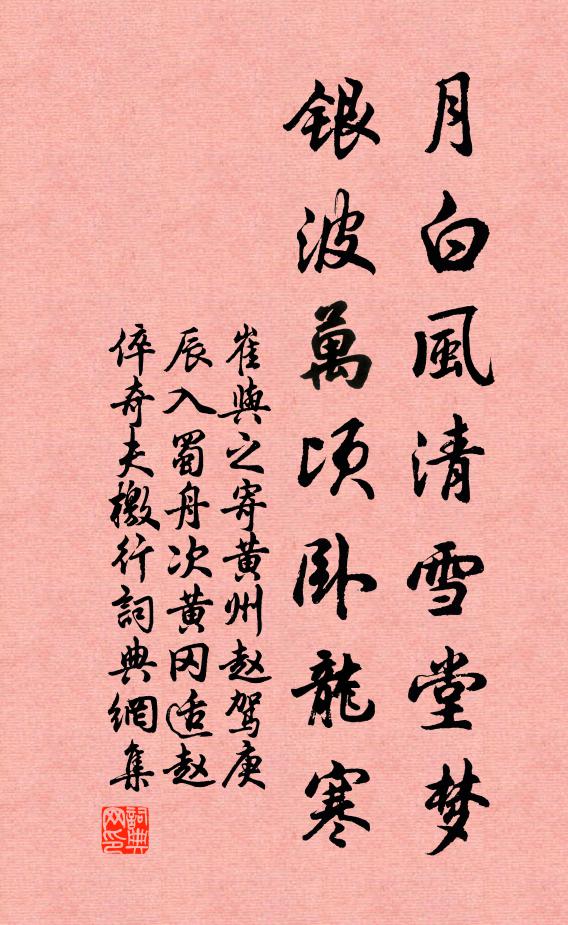 月白風清雪堂梦
銀波萬頃卧龍寒
崔與之寄黄州赵驾庚
辰入蜀舟次黄冈适赵
倅奇夫檄行詞典網集
詞典网印